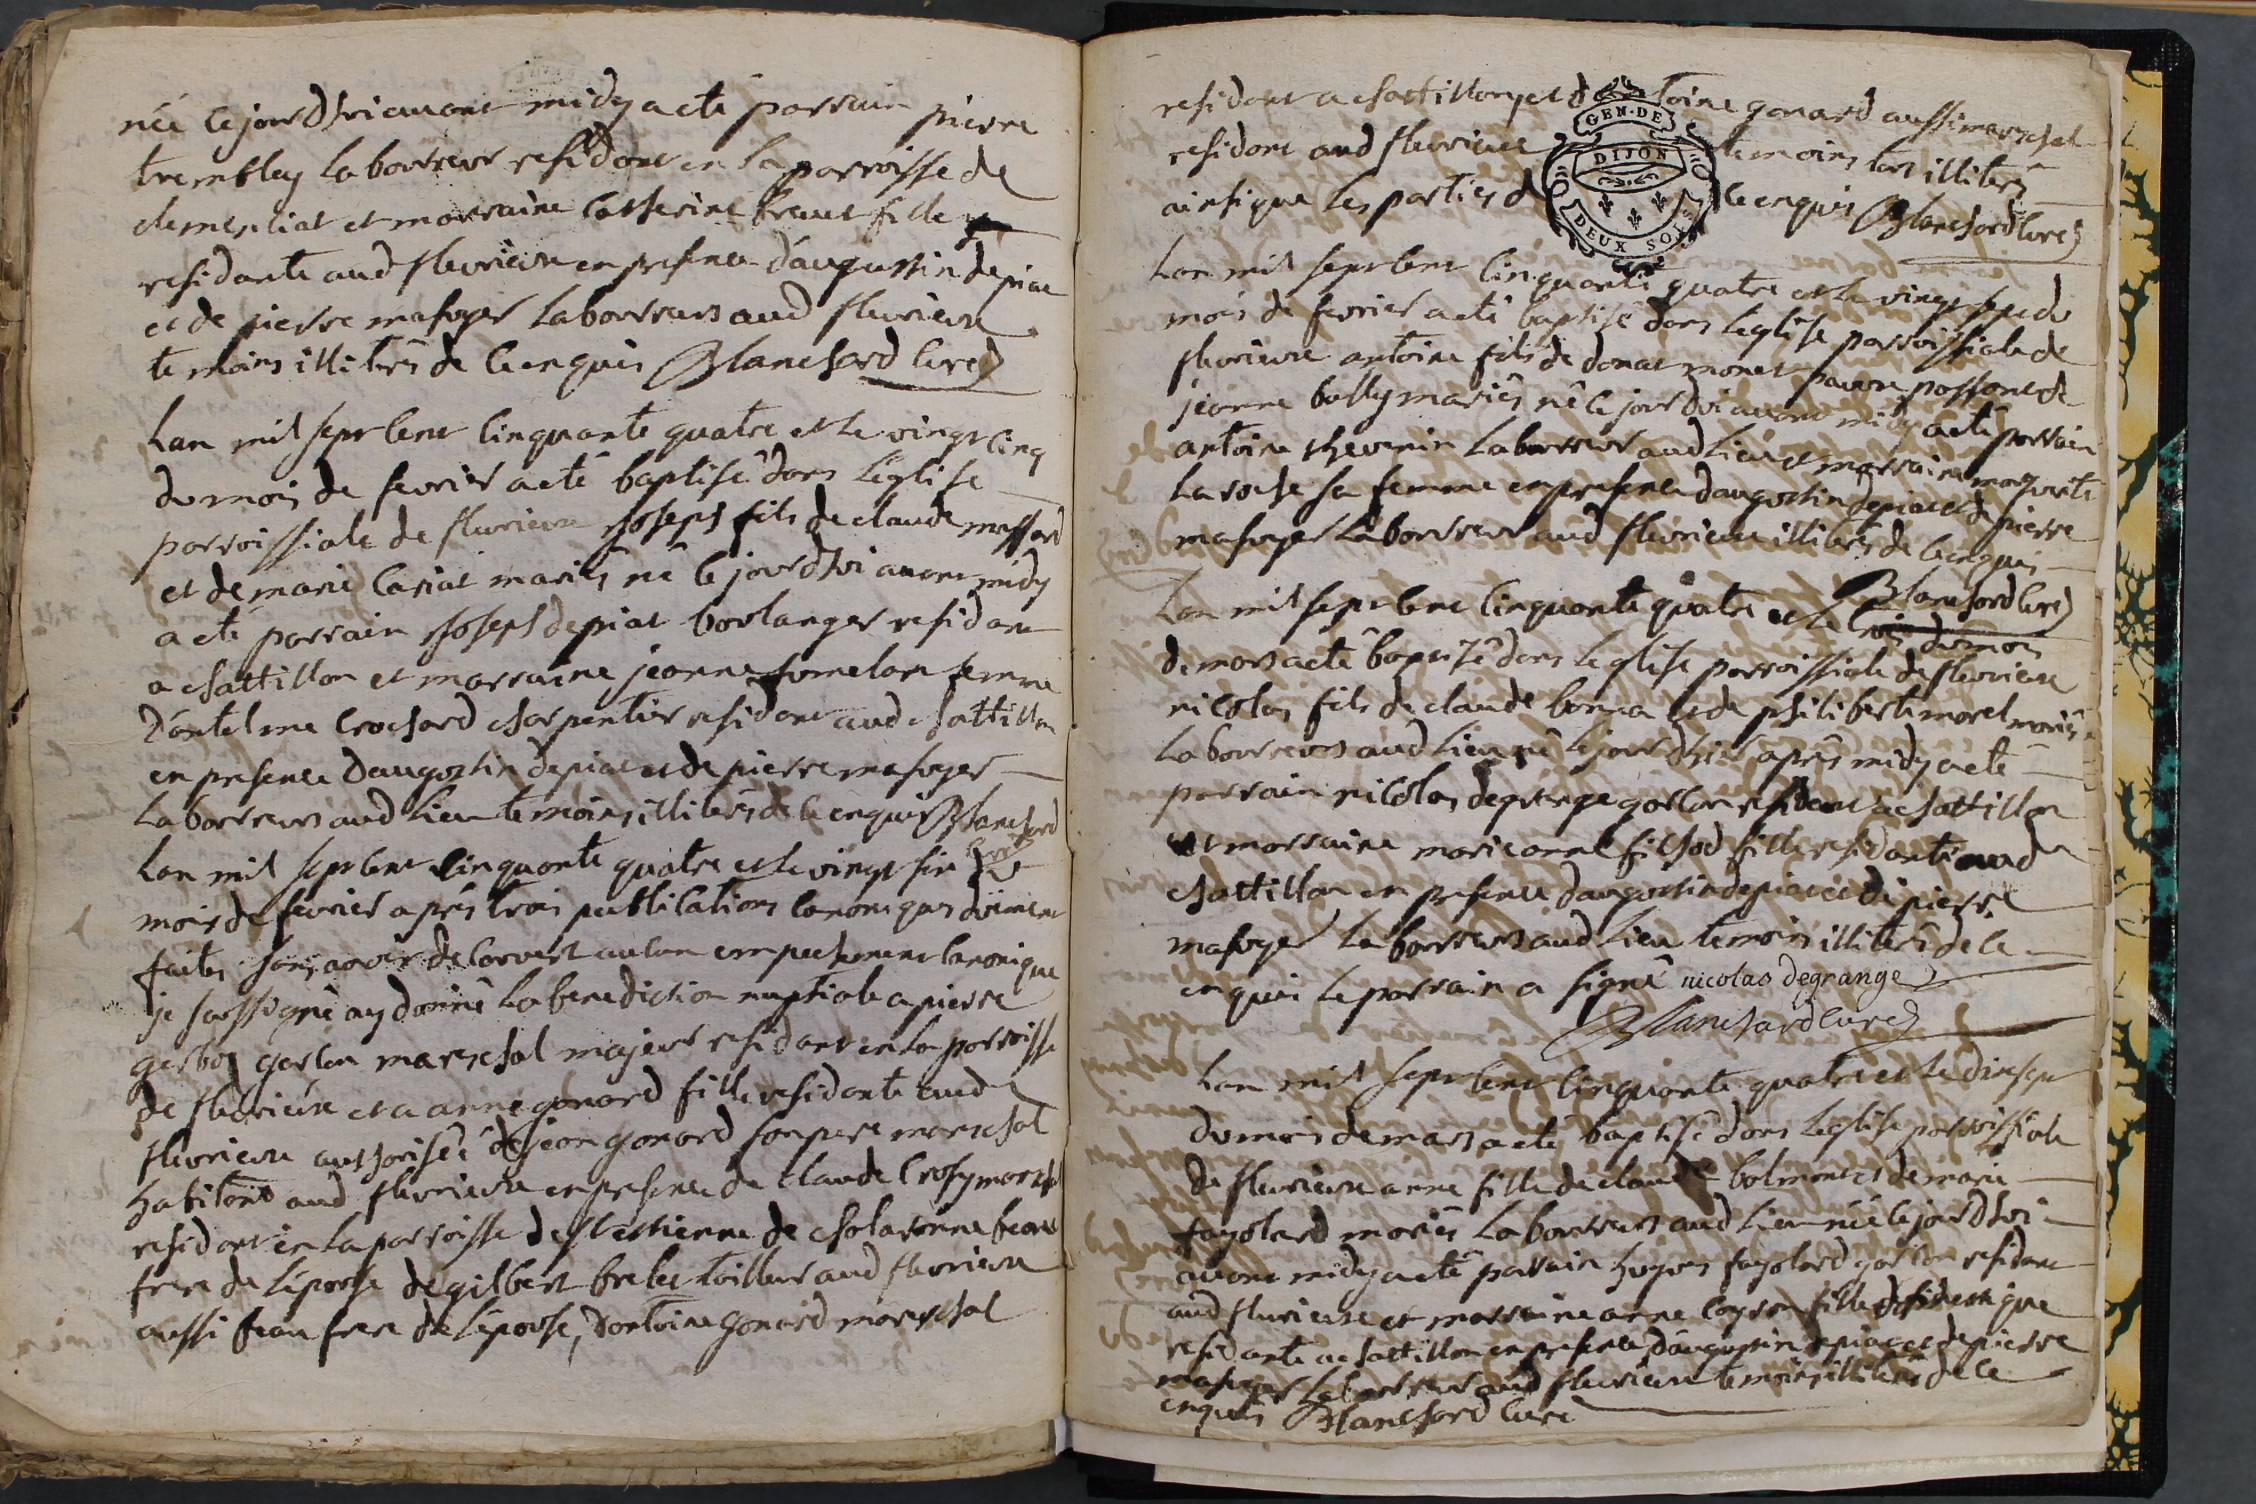 née le jourdhui avant midy a eté parrain pierre
tremblay laboureur residant en la parroisse de
clemenciat et marraine catherine brevet fille
residante aud fleurieux en presence d'augustin depiat
et de pierre mafoyer laboureurs aud fleurieux
temoins illiterés de ce enquis Blanchard curé
Lan mil sept cent cinquante quatre et le vingt cinq
du mois de fevrier a eté baptisé dans l'eglise
parroissiale de fleurieux joseph fils de claude massard
et de marie cariat mariés né le jourdhui avant midy
a eté parrain joseph depiat boulanger residant
a chattillon et marraine jeanne femme
d'antelme crochard charpentier residant aud chattillon
en presence d'augustin depiat et de pierre mafoyer
laboureurs aud lieu temoins illiterés de ce enquis Blanchard
curé
Lan mil sept cent cinquante quatre et le vingt six du
mois de fevrier aprés trois publications canoniques düement
faites sans avoir decouvert aucun empechement canonique
je soussigné ay donné la benediction nuptiale a pierre
garlon mareschal majeur residant en la parroisse
de fleurieux et a anne gonard fille residante aud
fleurieux authorisée de jean gonard son pere mareschal
habitant aud fleurieux en presence de claude crosy mareschal
residant en la parroisse de st estienne de chalaronne beau
frere de l'epouse de gilbert brelet tailleur aud fleurieux
aussi beau frere de l'epouse, d'antoine gonard mareschal
residant a chattillon, et d'antoine gonard aussi mareschal
residant aud fleurieux temoins tous illiterés
ainsi que les parties de ce enquis Blanchard curé
GEN. DE
DIJON
DEUX SOLS
Lan mil sept cent cinquante quatre et le vingt sept du
mois de fevrier a eté baptisé dans leglise parroissiale de
fleurieux antoine fils de donat monet pauvre passant et de
jeanne bolly mariés né le jourdhui avant midy a eté parrain
antoine thevenin laboureur aud lieu et marraine margueritte
laroche sa femme en presence d'augustin depiat et de pierre
mafoyer laboureurs aud fleurieux illiterés de ce enquis
Blanchard curé
Lan mil sept cent cinquante quatre et le trois du mois
de mars a eté baptisé dans leglise parroissiale de fleurieux
nicolas fils de claude bonna et de philiberte morel mariés
laboureurs aud lieu né le jour dhier aprés midy a eté
parrain nicolas degrange garçon residant a chattillon
et marraine marianne filliod fille residante aud
chattillon en presence d'augustin depiat et de pierre
mafoyer laboureurs aud lieu temoins illiterés de ce
enquis le parrain a signé nicolas degrange
Blanchard curé
Lan mil sept cent cinquante quatre et le dixsept
du mois de mars a eté baptisé dans leglise parroissiale
de fleurieux anne fille de claude bolmont et de marie
fagolard mariés laboureurs aud lieu née le jourdhui
avant midy a eté parrain hugues fagolard garçon residant
aud fleurieux et marraine anne fille domestique
residante a chattillon en presence d'augustin depiat et de pierre
mafoyer laboureurs aud fleurieux temoins illiterés de ce
enquis Blanchard curé